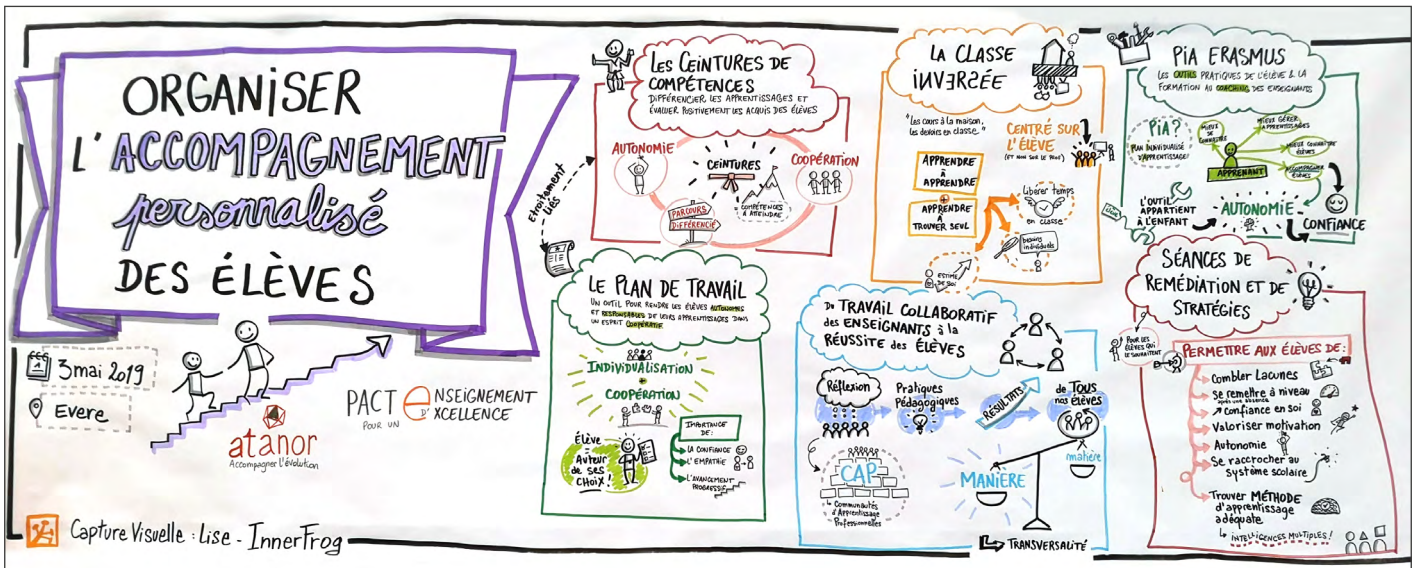 ORGANISER
L'ACCOMPAGNEMENT
personnalisé
DES ÉLÈVES
3 mai 2019
Evere
atanor
Accompagner l'évolution
PACT
POUR UN
eNSEIGNEMENT
D'eXCELLENCE
Capture Visuelle : Lise - InnerFrog
LES CEINTURES DE
COMPÉTENCES
DIFFÉRENCIER LES APPRENTISSAGES ET
ÉVALUER POSITIVEMENT LES ACQUIS DES ÉLÈVES
AUTONOMIE
CEINTURES
COOPÉRATION
COMPÉTENCES
À ATTEINDRE
PARCOURS
DIFFÉRENCIÉ
Etroitement
liés
LE PLAN DE TRAVAIL
UN OUTIL POUR RENDRE LES ÉLÈVES AUTONOMES
ET RESPONSABLES DE LEURS APPRENTISSAGES DANS
UN ESPRIT COOPÉRATIF
INDIVIDUALISATION
+
COOPÉRATION
ÉLÈVE
=
AUTEUR
DE SES
CHOIX !
IMPORTANCE
DE :
LA CONFIANCE
L'EMPATHIE
L'AVANCEMENT
PROGRESSIF
LA CLASSE
INVERSÉE
"Les cours à la maison,
les devoirs en classe."
CENTRÉ SUR
L'ÉLÈVE
(ET NON SUR LE PROF)
APPRENDRE
À
APPRENDRE
+
APPRENDRE
À
TROUVER SEUL
Libérer temps
en classe
besoins
individuels
ESTIME
DE SOI
Du TRAVAIL COLLABORATIF
des ENSEIGNANTS à la
RÉUSSITE des ÉLÈVES
Réflexion
Pratiques
Pédagogiques
RÉSULTATS
de TOUS
nos élèves
CAP
Communautés
d'Apprentissage
Professionnelles
MANIÈRE
matière
TRANSVERSALITÉ
PIA ERASMUS
LES OUTILS PRATIQUES DE L'ÉLÈVE & LA
FORMATION AU COACHING DES ENSEIGNANTS
PIA?
PLAN INDIVIDUALISÉ
D'APPRENTISSAGE
MIEUX SE
CONNAÎTRE
MIEUX GÉRER
APPRENTISSAGES
MIEUX CONNAÎTRE
ÉLÈVES
ACCOMPAGNER
ÉLÈVES
APPRENANT
L'OUTIL
APPARTIENT
À L'ENFANT
AUTONOMIE
CONFIANCE
SÉANCES DE
REMÉDIATION ET DE
STRATÉGIES
POUR LES
ÉLÈVES QUI
LE SOUHAITENT
PERMETTRE AUX ÉLÈVES DE :
Combler Lacunes
Se remettre à niveau
après une absence
↗ Confiance en soi
Valoriser motivation
Autonomie
Se raccrocher au
système scolaire
Trouver MÉTHODE
d'apprentissage
adéquate
INTELLIGENCES MULTIPLES !